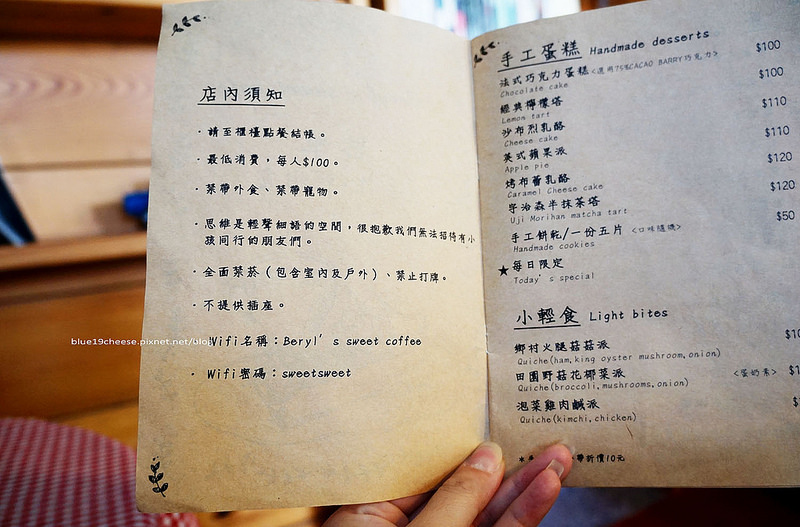 店內須知
·請至櫃檯點餐結帳。
·最低消費，每人$100。
·禁帶外食、禁帶寵物。
·思維是輕聲細語的空間，很抱歉我們無法招待有小
孩同行的朋友們。
·全面禁菸（包含室內及戶外）、禁止打牌。
·不提供插座。
Wifi名稱：Beryl’s sweet coffee
·Wifi密碼：sweetsweet
blue19cheese.pixnet.net/blog
手工蛋糕 Handmade desserts
法式巧克力蛋糕<選用75%CACAO BARRY巧克力> $100
Chocolate cake
經典檸檬塔 $100
Lemon tart
沙布烈乳酪 $110
Cheese cake
英式蘋果派 $110
Apple pie
烤布蕾乳酪 $120
Caramel Cheese cake
宇治森半抹茶塔 $120
Uji Morihan matcha tart
手工餅乾/一份五片 <口味隨機> $50
Handmade cookies
★每日限定
Today’s special
小輕食 Light bites
鄉村火腿菇菇派
Quiche(ham,king oyster mushroom,onion)
田園野菇花椰菜派 <蛋奶素>
Quiche(broccoli,mushrooms,onion)
泡菜雞肉鹹派
Quiche(kimchi,chicken)
帶折價10元